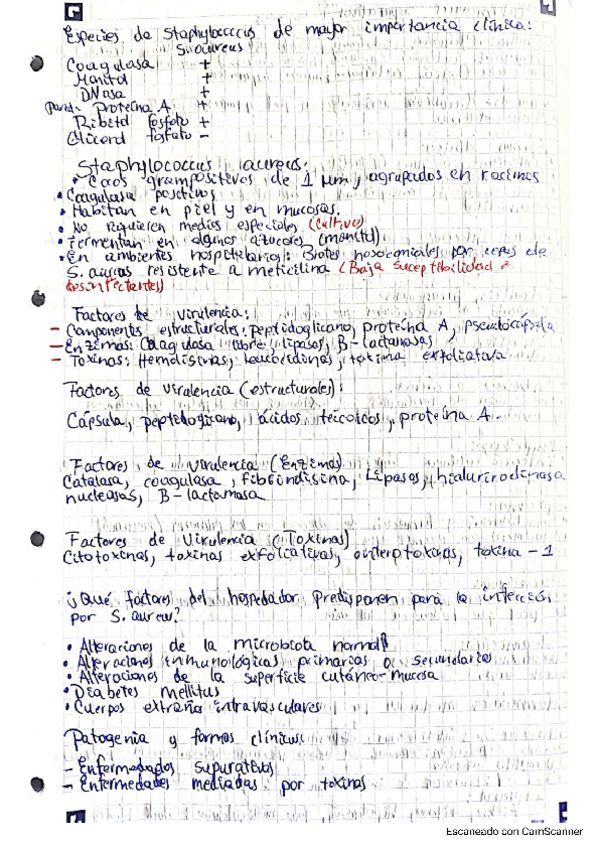 Especies de Staphylococcus de mayor importancia clínica:
S. aureus
Coagulasa +
Manitol +
DNasa +
Pared. Proteína A +
Ribitol fosfato +
Glicerol fosfato -
Staphylococcus aureus:
• Cocos grampositivos de 1 μm, agrupados en racimos
• Coagulasa positivos
• Habitan en piel y en mucosas
• No requieren medios especiales (cultivo)
• Fermentan en algunos azucares (manitol)
• En ambientes hospitalarios: Brotes nosocomiales por cepas de
S. aureus resistente a meticilina (Baja suceptibilidad a
desinfectantes)
Factores de virulencia:
- Componentes estructurales: peptidoglicano, proteína A, pseudocápsula
- Enzimas: Coagulasa libre, lipasas, B-lactamasas
- Toxinas: Hemolisinas, leucocidinas, toxina exfoliativa
Factores de virulencia (estructurales):
Cápsula, peptidoglicano, ácidos teicoicos, proteína A.
Factores de virulencia (Enzimas)
Catalasa, coagulasa, fibrinolisina, Lipasas, hialurinodinasa
nucleasas, B-lactamasa
Factores de Virulencia (Toxinas)
Citotoxinas, toxinas exfoliativas, enterotoxinas, toxina - 1
¿Qué factores del hospedador predisponen para la infección
por S. aureus?
• Alteraciones de la microbiota normal
• Alteraciones inmunológicas primarias o secundarias
• Alteraciones de la superficie cutáneo-mucosa
• Diabetes mellitus
• Cuerpos extraño intravasculares
Patogenia y formas clínicas:
- Enfermedades supurativas
- Enfermedades mediadas por toxinas
Escaneado con CamScanner